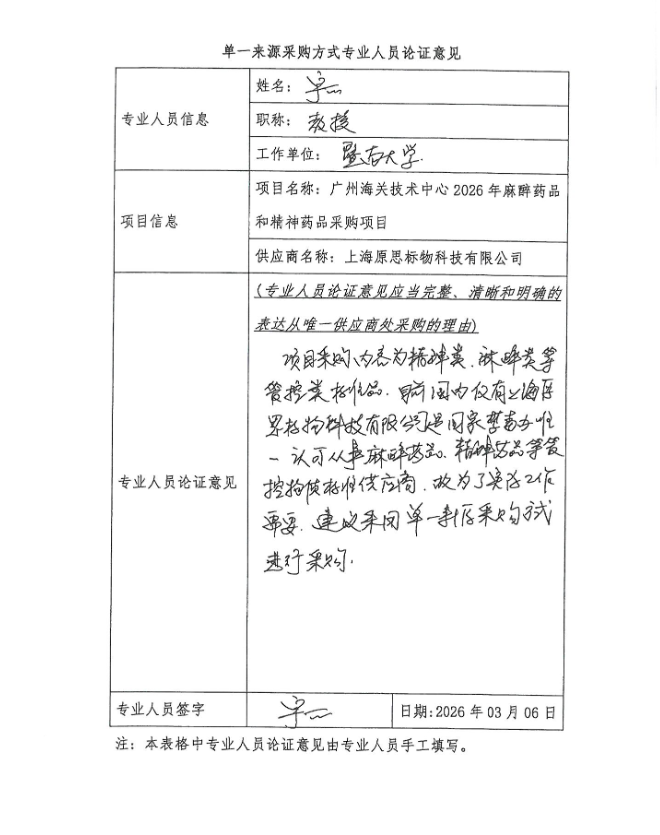 单一来源采购方式专业人员论证意见
专业人员信息
姓名：
职称：教授
工作单位：暨南大学
项目信息
项目名称：广州海关技术中心2026年麻醉药品
和精神药品采购项目
供应商名称：上海原思标物科技有限公司
专业人员论证意见
(专业人员论证意见应当完整、清晰和明确的
表达从唯一供应商处采购的理由)
项目采购内容为精神类、麻醉类等
管控类标准品。目前国内仅有上海原
思标物科技有限公司是国家禁毒办唯
一认可从事麻醉药品、精神药品等管
控物质标准供应商，故为了实际工作
需要，建议采用单一来源采购方式
进行采购。
专业人员签字
日期:2026年03月06日
注：本表格中专业人员论证意见由专业人员手工填写。